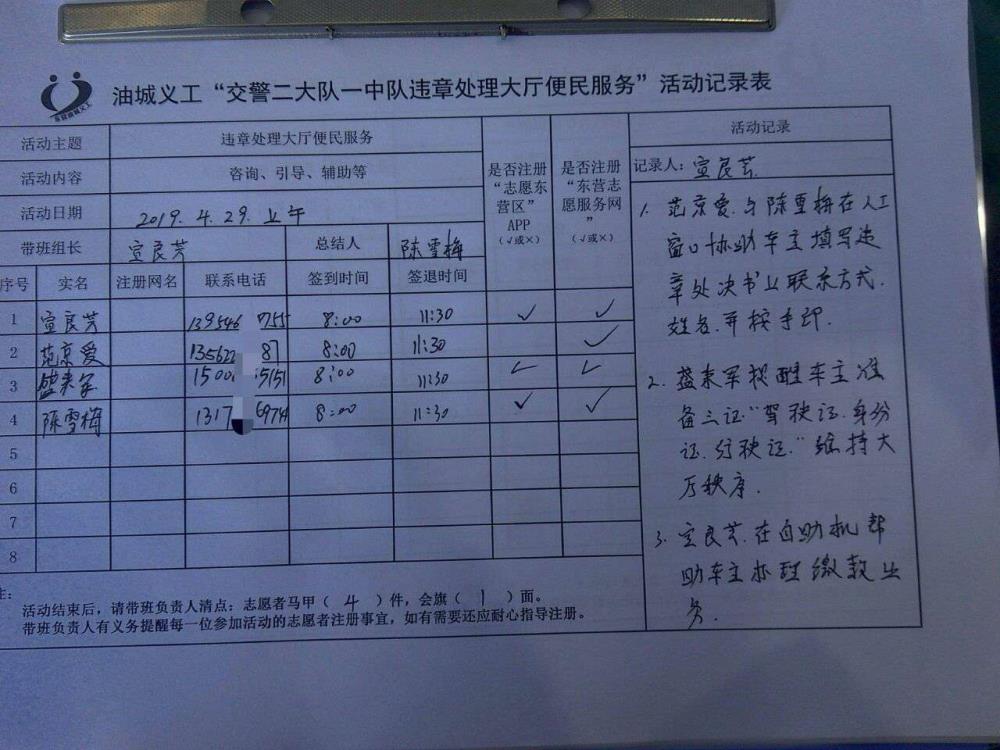 油城义工“交警二大队一中队违章处理大厅便民服务”活动记录表
活动主题 违章处理大厅便民服务
活动内容 咨询、引导、辅助等
活动日期 2019.4.29.上午
带班组长 宣良芳 总结人 陈雪梅
是否注册“志愿东营区”APP（√或×）
是否注册“东营志愿服务网”（√或×）
序号 实名 注册网名 联系电话 签到时间 签退时间
1 宣良芳 139546 755 8:00 11:30 ✓ ✓
2 范京爱 135622 87 8:00 11:30 ✓
3 盛来军 1500 5151 8:00 11:30 ✓ ✓
4 陈雪梅 1317 6974 8:00 11:30 ✓ ✓
5
6
7
8
注：
活动结束后，请带班负责人清点：志愿者马甲（4）件，会旗（1）面。
带班负责人有义务提醒每一位参加活动的志愿者注册事宜，如有需要还应耐心指导注册。
活动记录
记录人：宣良芳
1. 范京爱.与陈雪梅在人工
窗口协助车主填写违
章处决书上联系方式.
姓名.并按手印.
2. 盛来军提醒车主准
备三证“驾驶证.身份
证.行驶证.”维持大
厅秩序.
3. 宣良芳.在自助机帮
助车主办理缴款业
务.